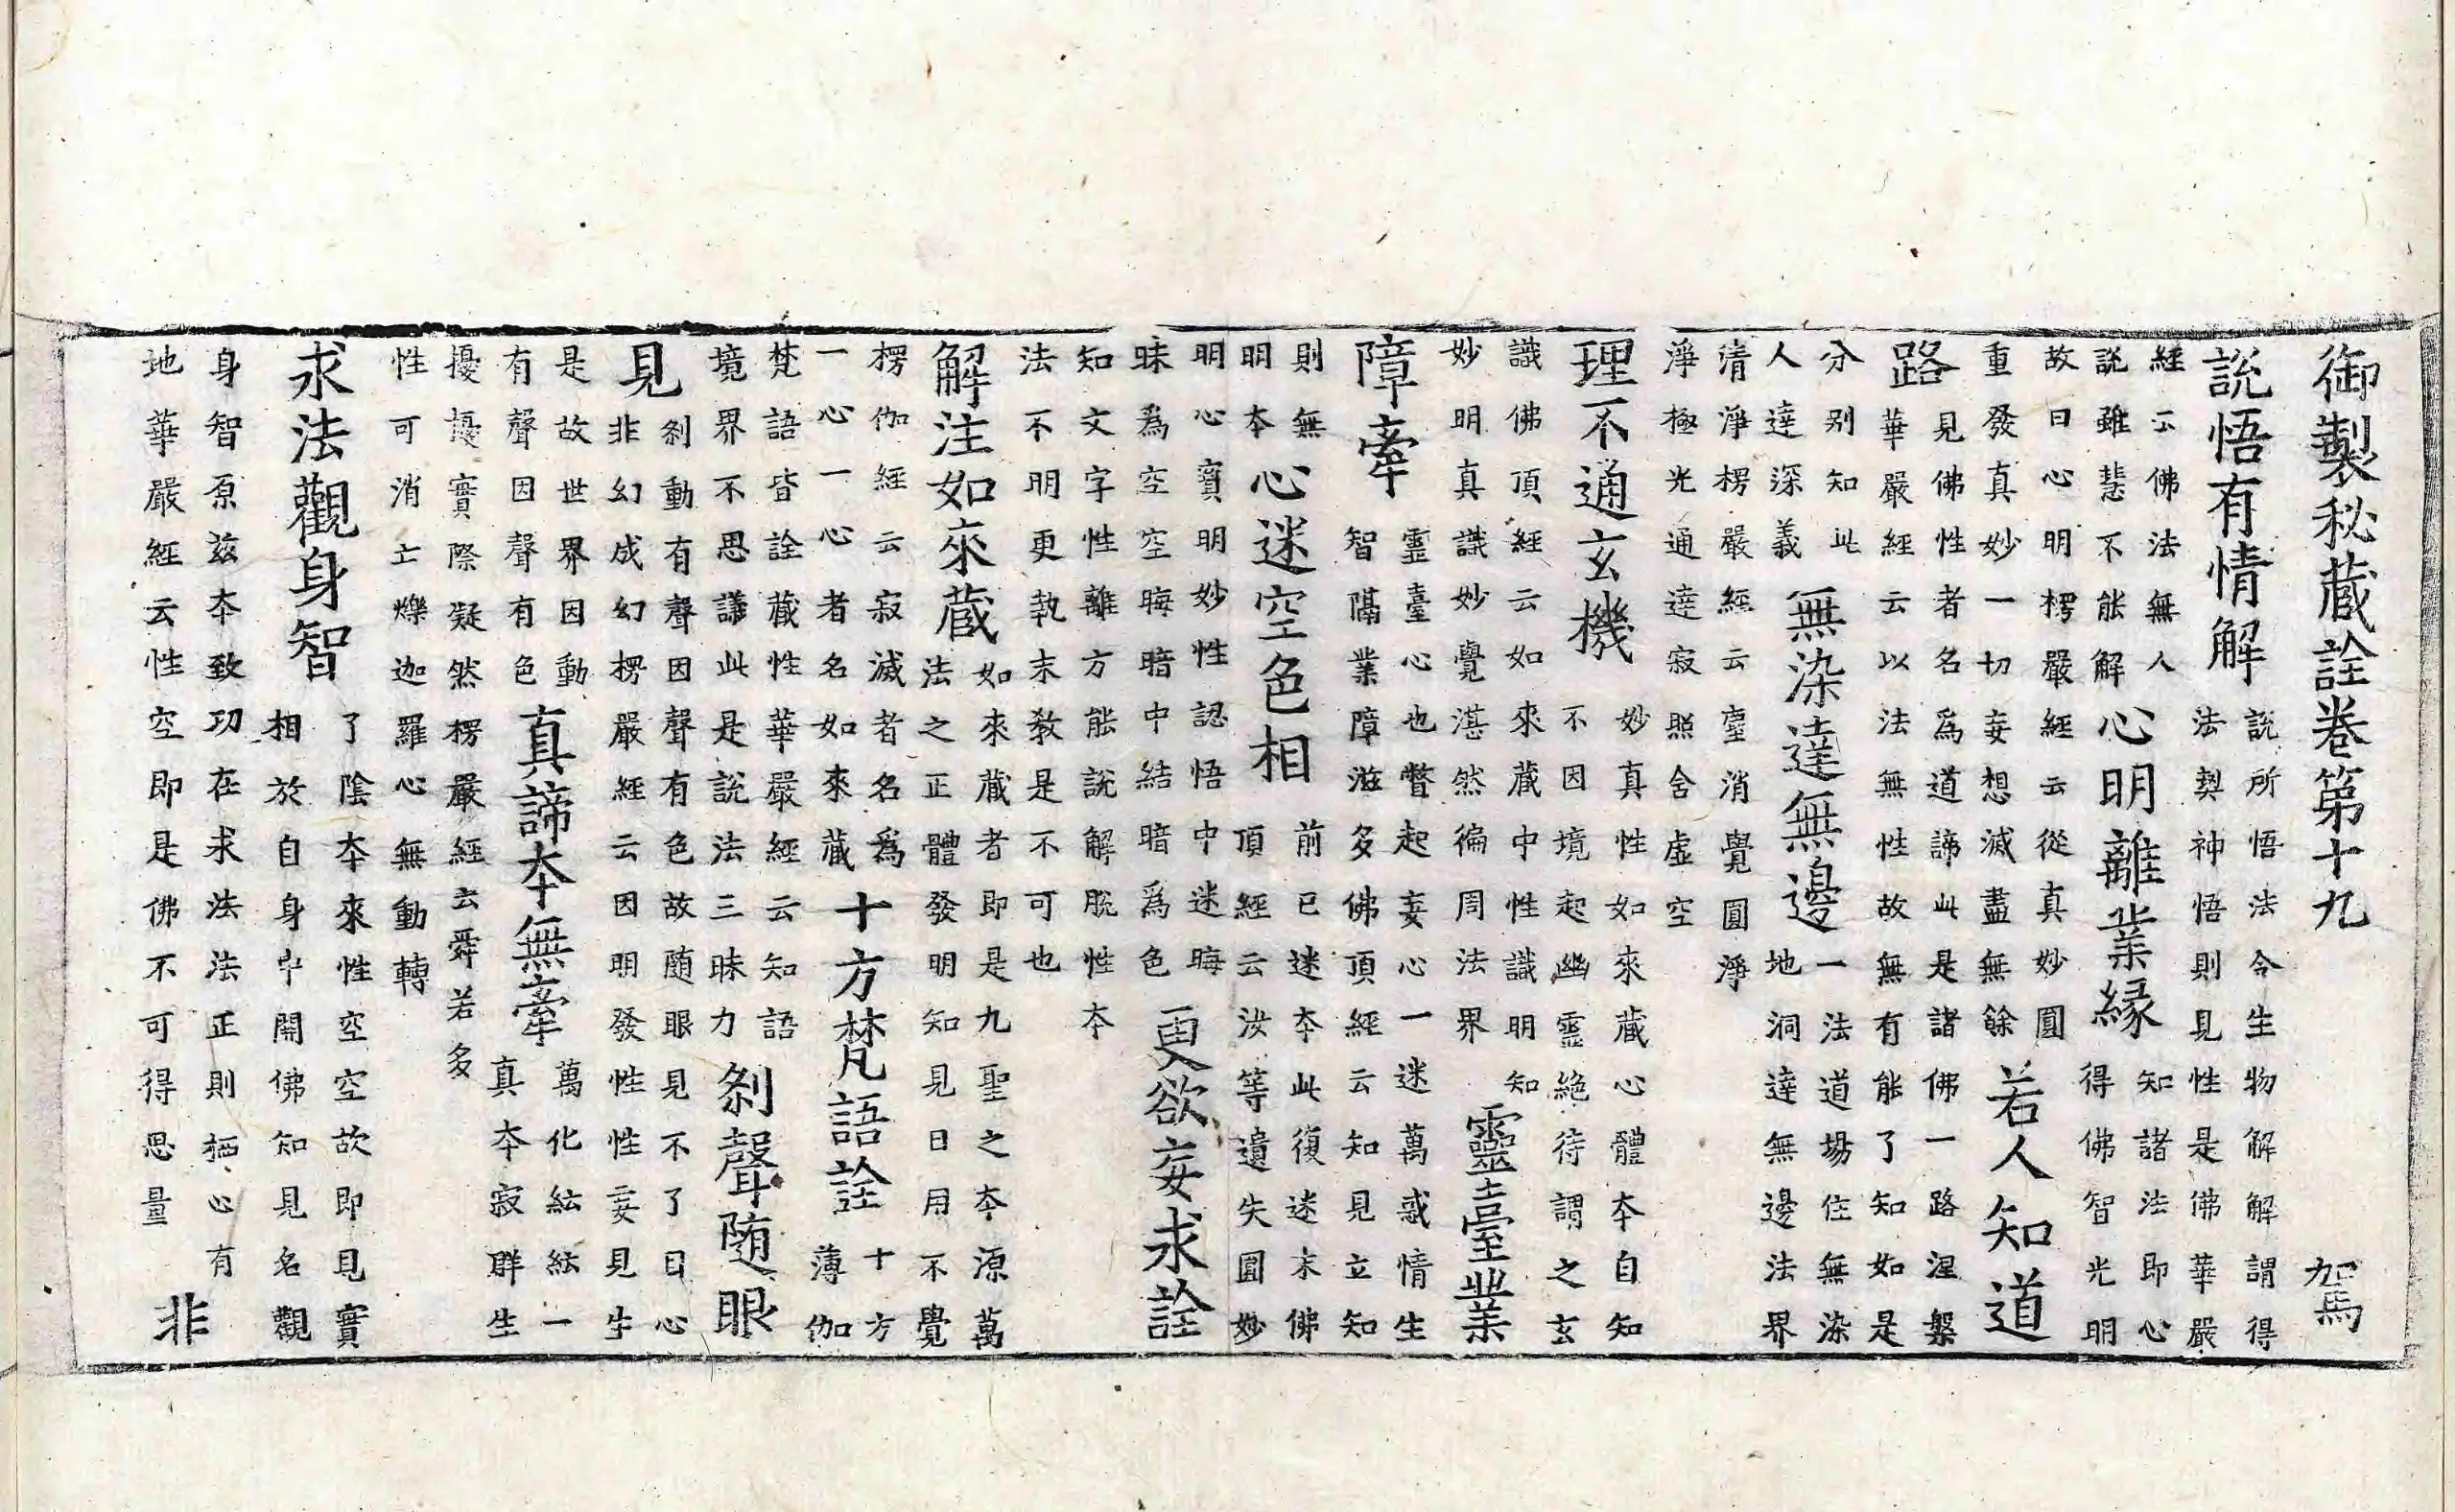 御製秘蔵詮巻第十九 駕
說悟有情解
說所悟法令生物解解謂得
法契神悟則見性是佛華嚴
經云佛法無人
說雖慧不能解
心明離業縁
知諸法即心
得佛智光明
故曰心明楞嚴經云從真妙圓
重發真妙一切妄想滅盡無餘
若人知道
路
見佛性者名為道諦此是諸佛一路涅槃
華嚴經云以法無性故無有能了知如是
分別知此
人達深義
無染達無邊
一法道場住無染
地洞達無邊法界
清淨楞嚴經云塵消覺圓淨
淨極光通達寂照含虛空
理不通玄機
妙真性如來蔵心體夲自知
不因境起幽靈絶待謂之玄
識佛頂經云如來蔵中性識明知
妙明真識妙覺湛然徧周法界
靈臺業
障牽
靈臺心也瞥起妄心一迷萬惑情生
智隔業障滋多佛頂經云知見立知
則無
明夲
心迷空色相
前已迷夲此復迷末佛
頂經云汝等遺失圓妙
明心寳明妙性認悟中迷晦
昧爲空空晦暗中結暗爲色
更欲妄求詮
知文字性離方能說解脫性夲
法不明更執末教是不可也
解注如來蔵
如來蔵者即是九聖之夲源萬
法之正體發明知見日用不覺
楞伽經云寂滅者名爲
一心一心者名如來蔵
十方梵語詮
十方
薄伽
梵語皆詮蔵性華嚴經云知語
境界不思議此是說法三昧力
刹聲随眼
見
刹動有聲因聲有色故随眼見不了日心
非幻成幻楞嚴經云因明發性性妄見生
是故世界因動
有聲因聲有色
真諦夲無牽
萬化紜紜一
真夲寂群生
擾擾實際凝然楞嚴經云舜若多
性可消亡爍迦羅心無動轉
求法觀身智
了陰夲來性空空故即見實
相於自身中開佛知見名觀
身智原兹夲致功在求法法正則栖心有
地華嚴經云性空即是佛不可得思量
非